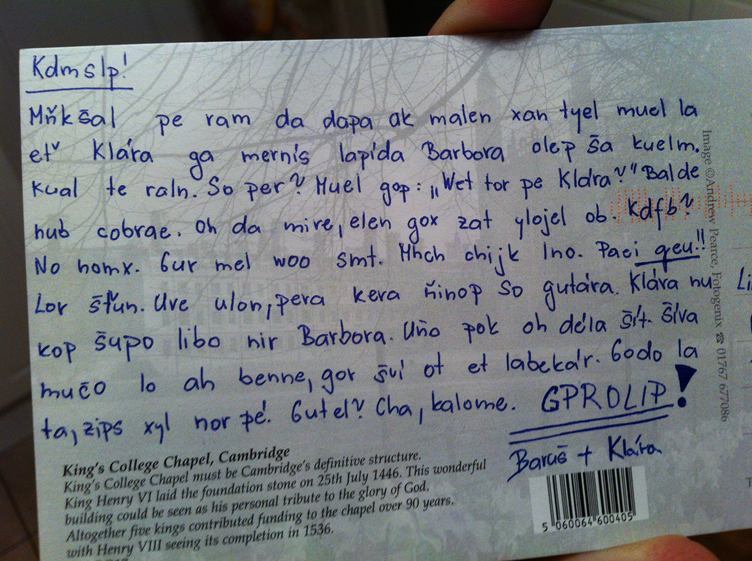 Kdmslp!
Mňkšal pe ram da dapa ak malen xan tyel muel la
Klára ga mernis lapida Barbora olep ša kuelm.
kual te raln. So per? Muel gop: „Wet tor pe Klára?" Bal de
hub cobrae. Oh da mire, elen gox zat ylojel ob. Kdfb?
No homx. Gur mel woo smt. Mhch chijk lno. Paci geu!!
Lor Uve ulon, pera kera ňinop So gutára. Klára nu
kop šupo libo nir Barbora. Uňo pok oh déla šít. Šíva
mučo lo ah benne, gor šví ot et labekár. Godo la
ta, zips xyl nor pé! Gutel? Cha, kalome. GPROLIP!
Baruš + Klára
King's College Chapel, Cambridge
King's College Chapel must be Cambridge's definitive structure.
King Henry VI laid the foundation stone on 25th July 1446. This wonderful
building could be seen as his personal tribute to the glory of God.
Altogether five kings contributed funding to the chapel over 90 years.
with Henry VIII seeing its completion in 1536.
5 060064 600405
Image ©Andrew Pearce, Fotogenix ☎ 01767 677086